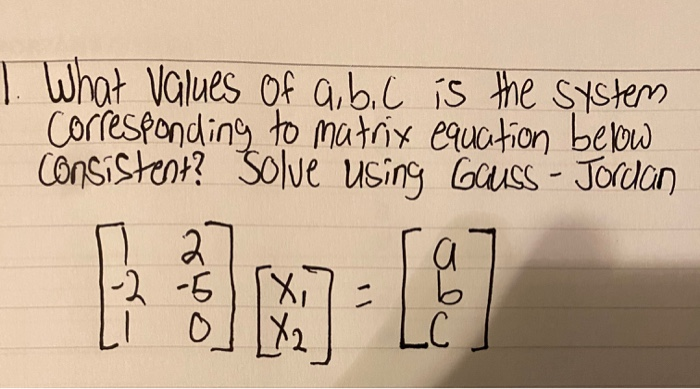 1. What values of a,b,c is the system
corresponding to matrix equation below
consistent? Solve using Gauss-Jordan
[1 2] [a]
[-2 -5] [x₁] = [b]
[1 0] [x₂] [c]